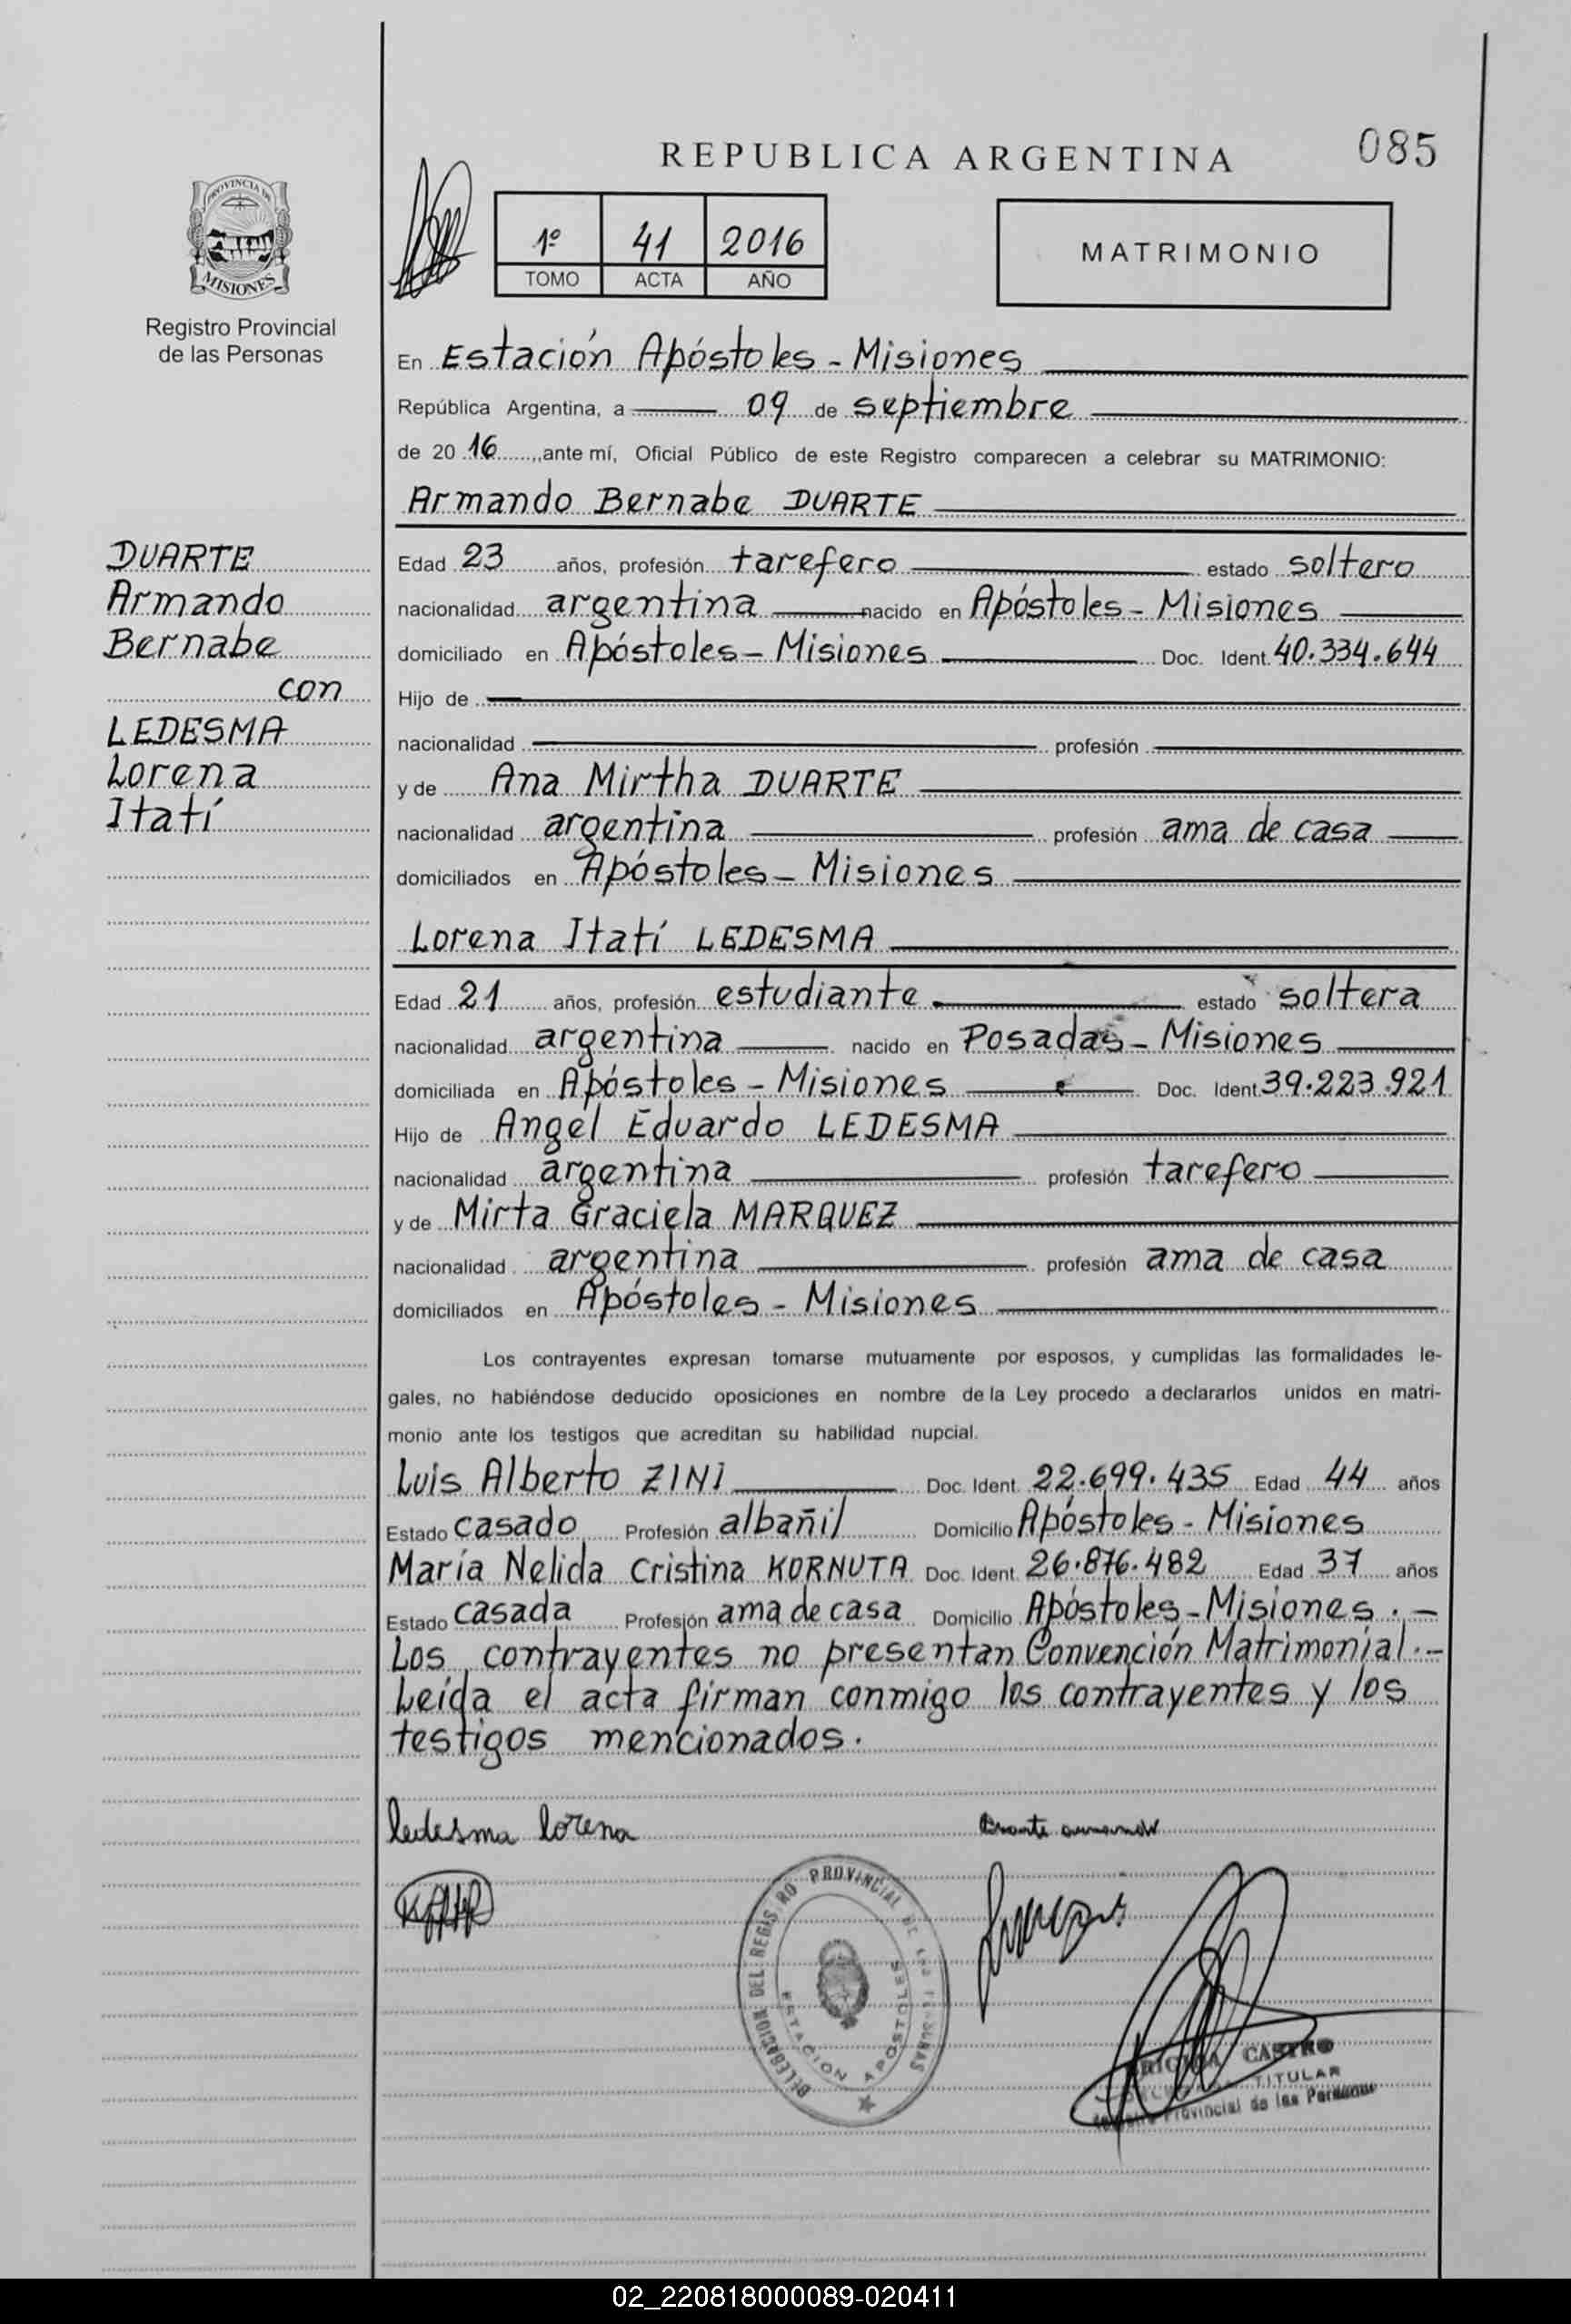 REPUBLICA ARGENTINA
085
PROVINCIA DE
MISIONES
Registro Provincial
de las Personas
1º 41 2016
TOMO ACTA AÑO
MATRIMONIO
En Estación Apóstoles - Misiones
República Argentina, a 09 de septiembre
de 2016, ante mí, Oficial Público de este Registro comparecen a celebrar su MATRIMONIO:
Armando Bernabe DUARTE
DUARTE
Armando
Bernabe
con
LEDESMA
Lorena
Itatí
Edad 23 años, profesión tarefero estado soltero
nacionalidad argentina nacido en Apóstoles - Misiones
domiciliado en Apóstoles - Misiones Doc. Ident. 40.334.644
Hijo de
nacionalidad profesión
y de Ana Mirtha DUARTE
nacionalidad argentina profesión ama de casa
domiciliados en Apóstoles - Misiones
Lorena Itatí LEDESMA
Edad 21 años, profesión estudiante estado soltera
nacionalidad argentina nacido en Posadas - Misiones
domiciliada en Apóstoles - Misiones Doc. Ident. 39.223.921
Hijo de Angel Eduardo LEDESMA
nacionalidad argentina profesión tarefero
y de Mirta Graciela MARQUEZ
nacionalidad argentina profesión ama de casa
domiciliados en Apóstoles - Misiones
Los contrayentes expresan tomarse mutuamente por esposos, y cumplidas las formalidades le-
gales, no habiéndose deducido oposiciones en nombre de la Ley procedo a declararlos unidos en matri-
monio ante los testigos que acreditan su habilidad nupcial.
Luis Alberto ZINI Doc. Ident. 22.699.435 Edad 44 años
Estado casado Profesión albañil Domicilio Apóstoles - Misiones
María Nelida Cristina KORNUTA Doc. Ident. 26.876.482 Edad 37 años
Estado casada Profesión ama de casa Domicilio Apóstoles - Misiones . -
Los contrayentes no presentan Convención Matrimonial . -
Leída el acta firman conmigo los contrayentes y los
testigos mencionados.
Ledesma Lorena
DELEGACION DEL REGISTRO PROVINCIAL DE LAS PERSONAS
ESTACION APOSTOLES
CASTRO
TITULAR
Provincial de las Personas
02_220818000089-020411